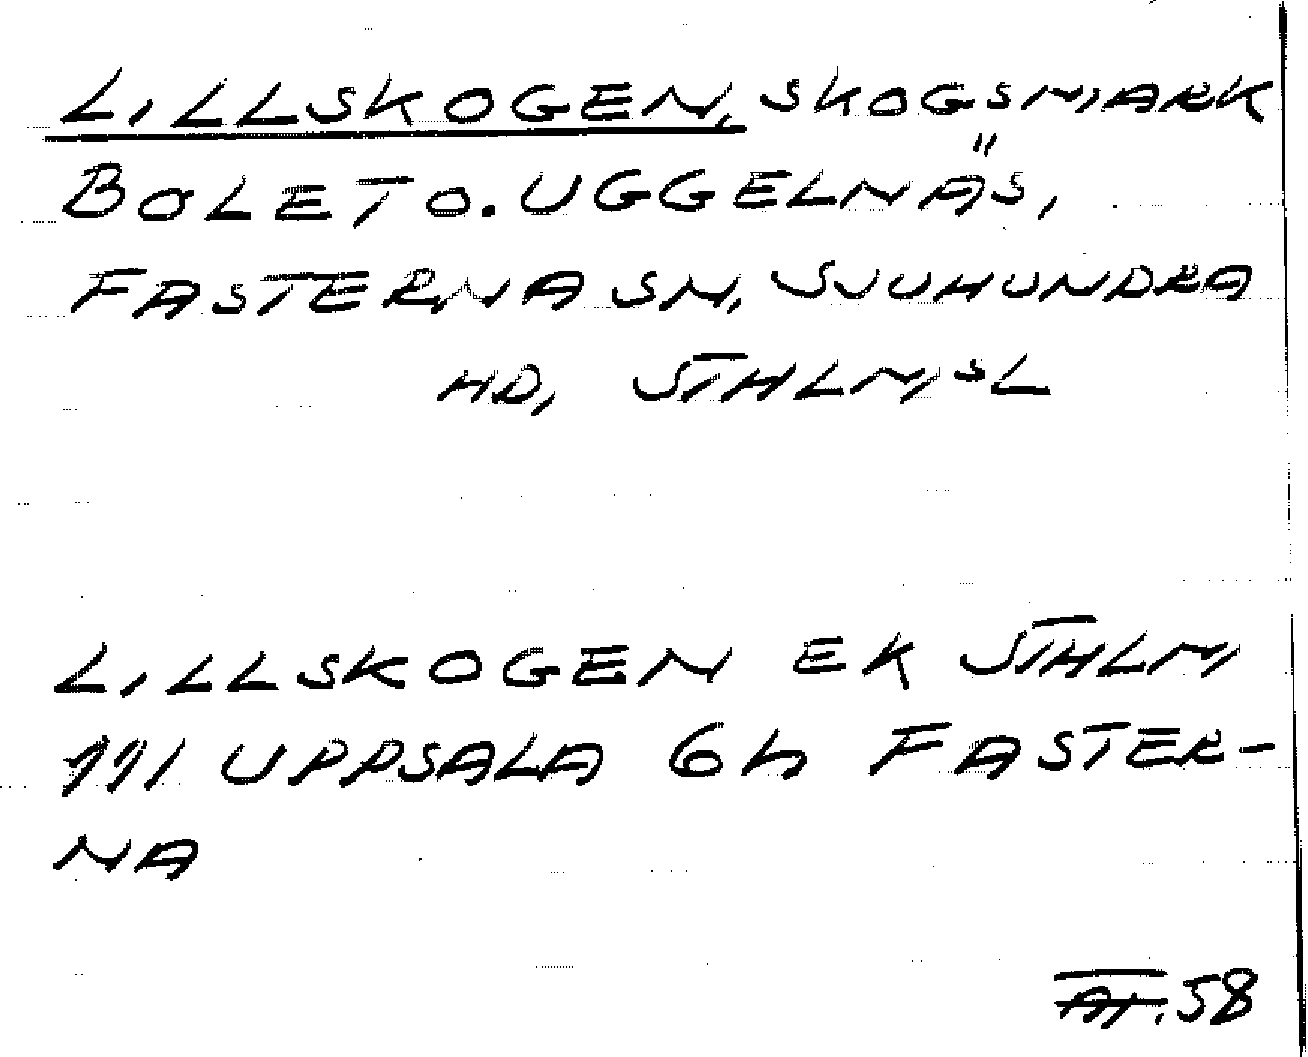 LILLSKOGEN, SKOGSMARK
BOLET O. UGGELNÄS,
FASTERNA SN, SJUHUNDRA
HD, STHLMSL
LILLSKOGEN EK STHLM
111 UPPSALA 6h FASTER-
NA
58